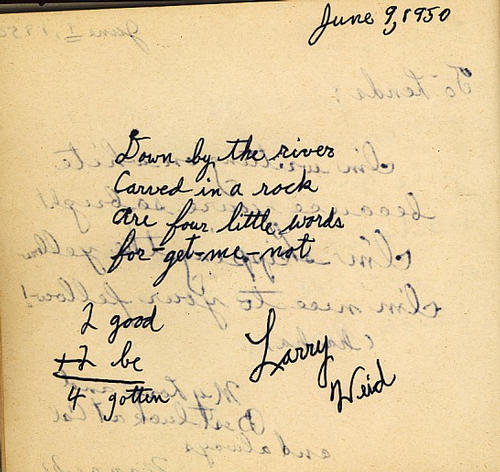 June 9, 1950
Down by the river
Carved in a rock
are four little words
for-get-me-not
2 good
+2 be
4 gotten
Larry
Weid